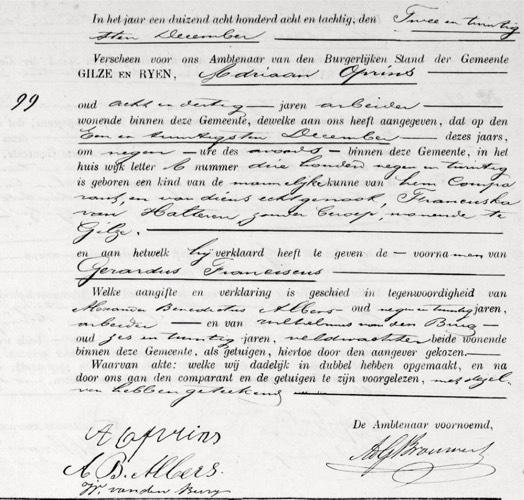 In het jaar een duizend acht honderd acht en tachtig, den Twee en twintig
sten December
Verscheen voor ons Ambtenaar van den Burgerlijken Stand der Gemeente
GILZE EN RYEN, Adriaan Oprins
99
oud acht en dertig jaren arbeider
wonende binnen deze Gemeente, dewelke aan ons heeft aangegeven, dat op den
Een en twintigsten December dezes jaars,
om negen ure des avonds binnen deze Gemeente, in het
huis wijk letter C nummer drie honderd negen en twintig
is geboren een kind van de mannelijke kunne van hem Compa
rant, en van diens echtgenoote, Franciska
van Halteren, zonder beroep, wonende te
Gilze.
en aan hetwelk hij verklaard heeft te geven de voornamen van
Gerardus Franciscus
Welke aangifte en verklaring is geschied in tegenwoordigheid van
Alexander Benedictus Albers oud negen en twintig jaren,
arbeider en van Wilhelmus van den Burg
oud zes en twintig jaren, veldwachter beide wonende
binnen deze Gemeente, als getuigen, hiertoe door den aangever gekozen.
Waarvan akte: welke wij dadelijk in dubbel hebben opgemaakt, en na
door ons gan den comparant en de getuigen te zijn voorgelezen, met dezel
ven hebben geteekend
De Ambtenaar voornoemd,
A Oprins
A B. Albers.
W. van den Burg